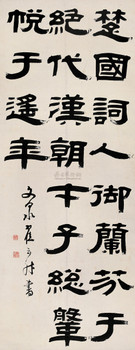 楚國詞人御蘭芬于
絕代漢朝才子總鞶
帨于遙年
書